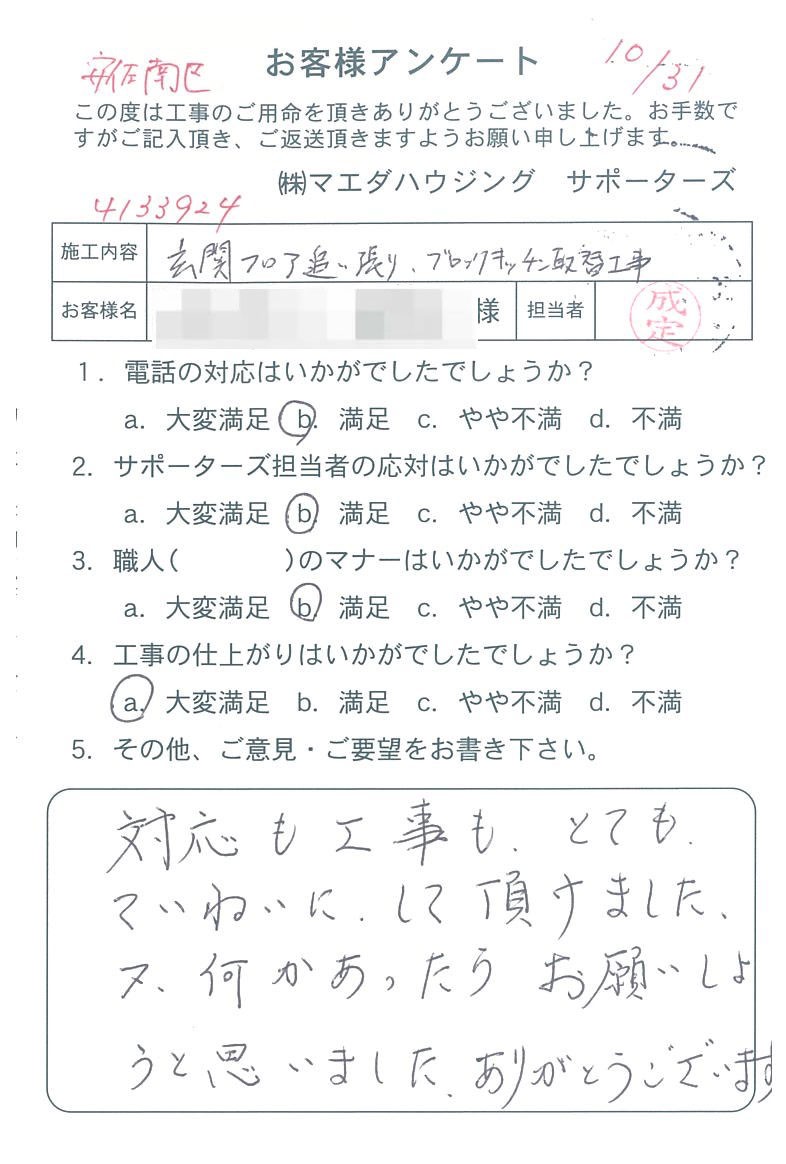 お客様アンケート
安佐南区
10/31
この度は工事のご用命を頂きありがとうございました。お手数で
すがご記入頂き、ご返送頂きますようお願い申し上げます。
㈱マエダハウジング サポーターズ
4133924
施工内容 玄関フロア追い張り、ブロックキッチン取替工事
お客様名 様 担当者 成定
1. 電話の対応はいかがでしたでしょうか？
a. 大変満足 b. 満足 c. やや不満 d. 不満
2. サポーターズ担当者の応対はいかがでしたでしょうか？
a. 大変満足 b. 満足 c. やや不満 d. 不満
3. 職人( )のマナーはいかがでしたでしょうか？
a. 大変満足 b. 満足 c. やや不満 d. 不満
4. 工事の仕上がりはいかがでしたでしょうか？
a. 大変満足 b. 満足 c. やや不満 d. 不満
5. その他、ご意見・ご要望をお書き下さい。
対応も工事も、とても、
ていねいに、して頂けました、
又、何かあったら お願いしょ
うと思いました、ありがとうございます